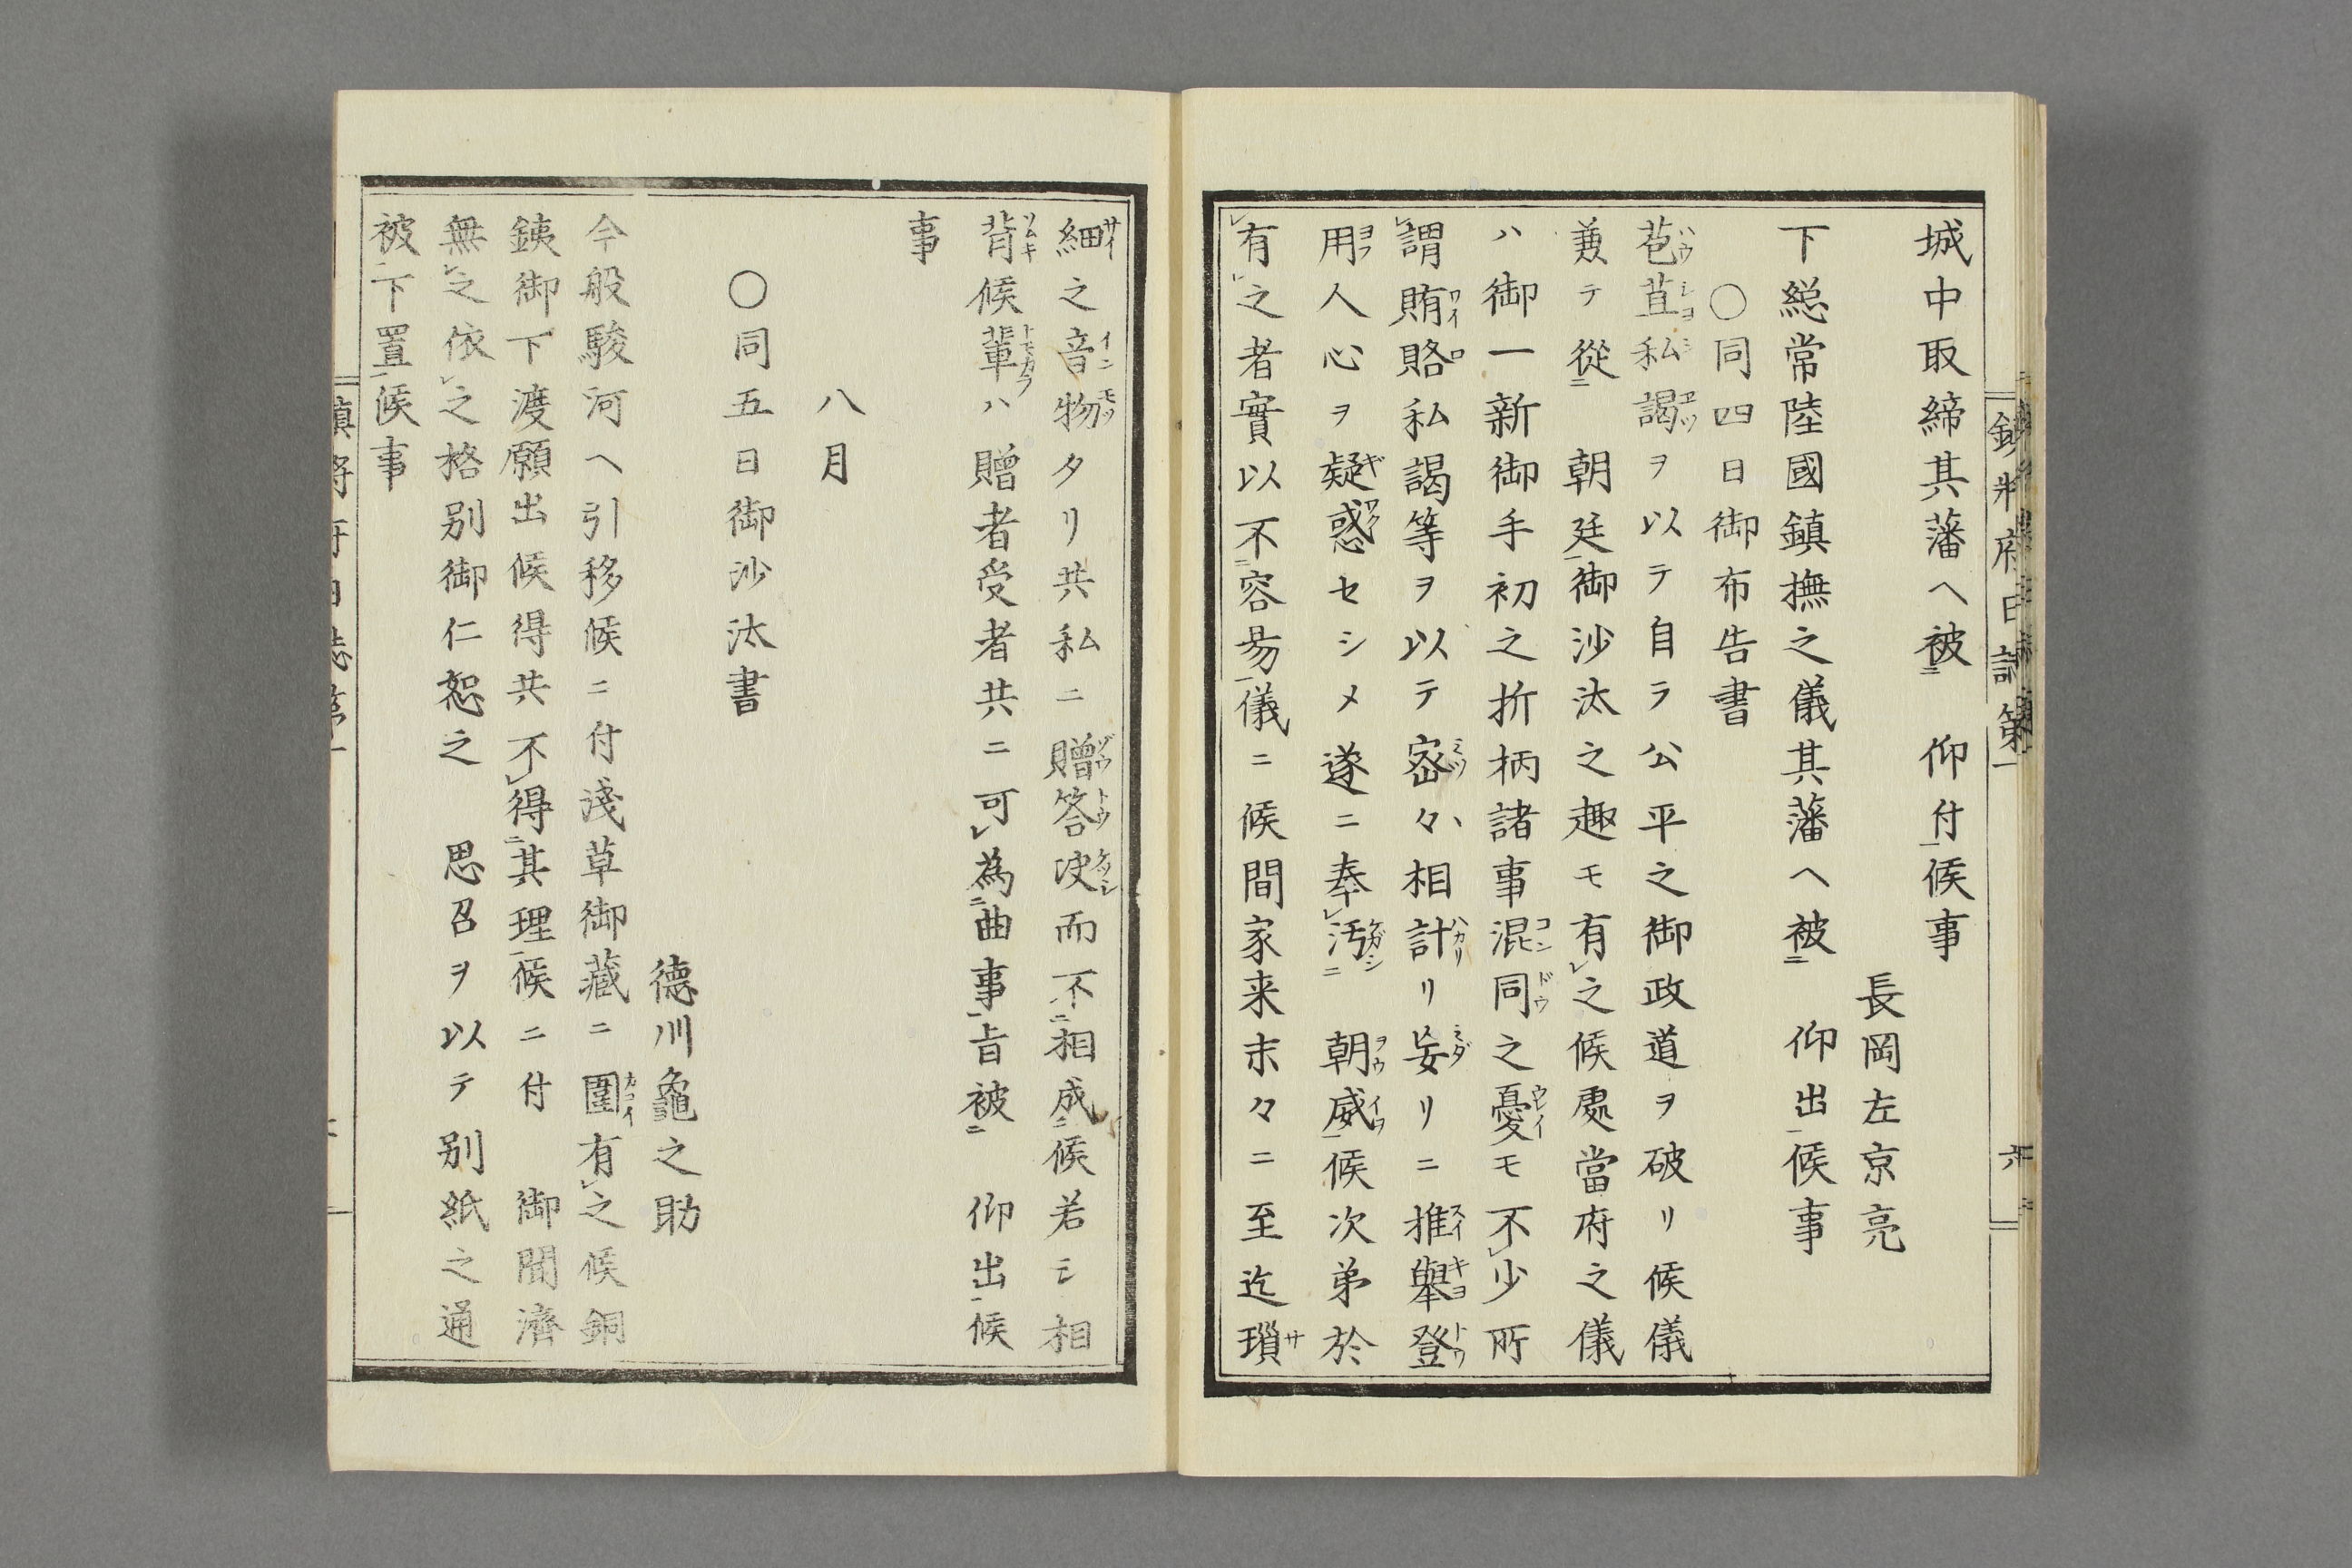 鎮將府日誌第一
六
城中取締其藩ヘ被二　仰付一候事
長岡左京亮
下総常陸國鎮撫之儀其藩ヘ被二　仰出一候事
〇同四日御布告書
苞苴私謁ヲ以テ自ラ公平之御政道ヲ破リ候儀
兼テ從二　朝廷一御沙汰之趣モ有レ之候處當府之儀
ハ御一新御手初之折柄諸事混同之憂モ不レ少所
レ謂賄賂私謁等ヲ以テ密々相計リ妄リニ推舉登
用人心ヲ疑惑セシメ遂ニ奉レ汚二　朝威一候次第於
レ有レ之者實以不二容易一儀ニ候間家来末々ニ至迄瑣
細之音物タリ共私ニ贈答决而不二相成一候若シ相
背候輩ハ贈者受者共ニ可レ為二曲事一旨被二　仰出一候
事
八月
〇同五日御沙汰書
德川龜之助
今般駿河ヘ引移候ニ付淺草御藏ニ圍有レ之候銅
銕御下渡願出候得共不レ得二其理一候ニ付　御聞濟
無レ之依レ之格別御仁恕之　思召ヲ以テ別紙之通
被二下置一候事
鎮將府日誌第一